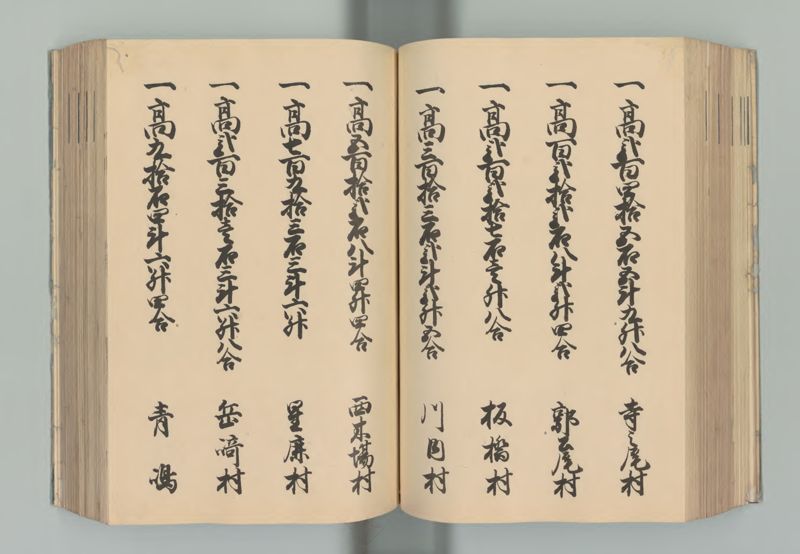 一高弐百四拾五石五斗九升八合 寺之尾村
一高百弐拾弐石八斗弐升四合 郭之尾村
一高弐百弐拾七石壱升八合 板橋村
一高三百拾三石弐斗弐升五合 川目村
一高五百拾弐石八斗四升四合 西来場村
一高七百九拾三石三斗六升 星廉村
一高弐百三拾壱石三斗六升八合 岳﨑村
一高九拾石四斗六升四合 青嶋